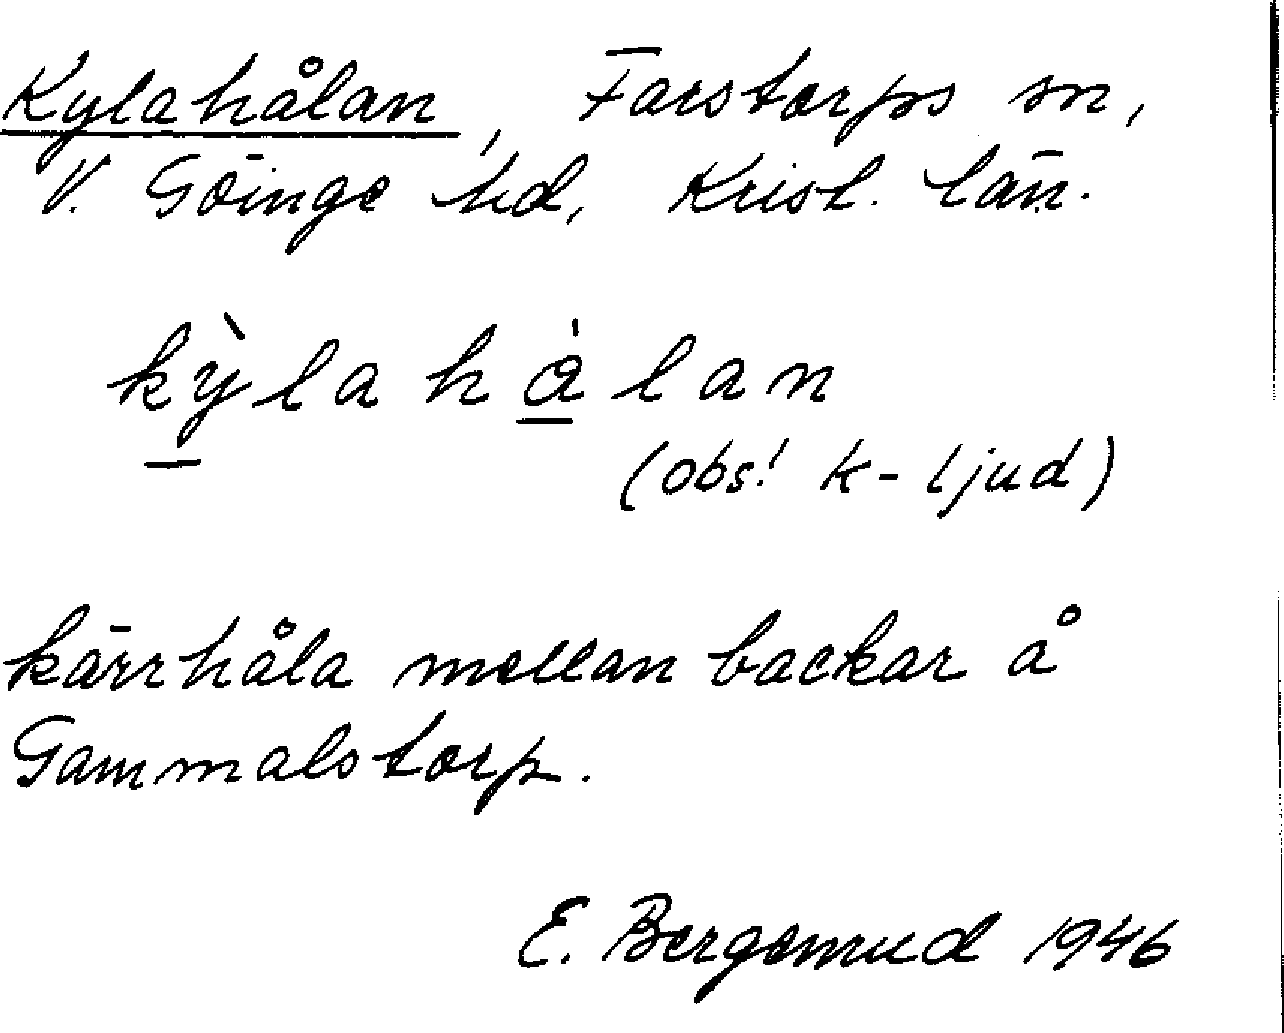 Kylahålan, Farstorps sn,
V. Göinge hd, Krist. län.
kỳlahålan
(obs! k-ljud)
kärrhåla mellan backar å
Gammalstorp.
E. 1946